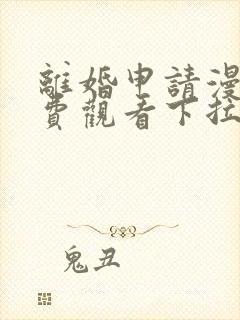 離婚申請漫
費觀看下拉
鬼丑